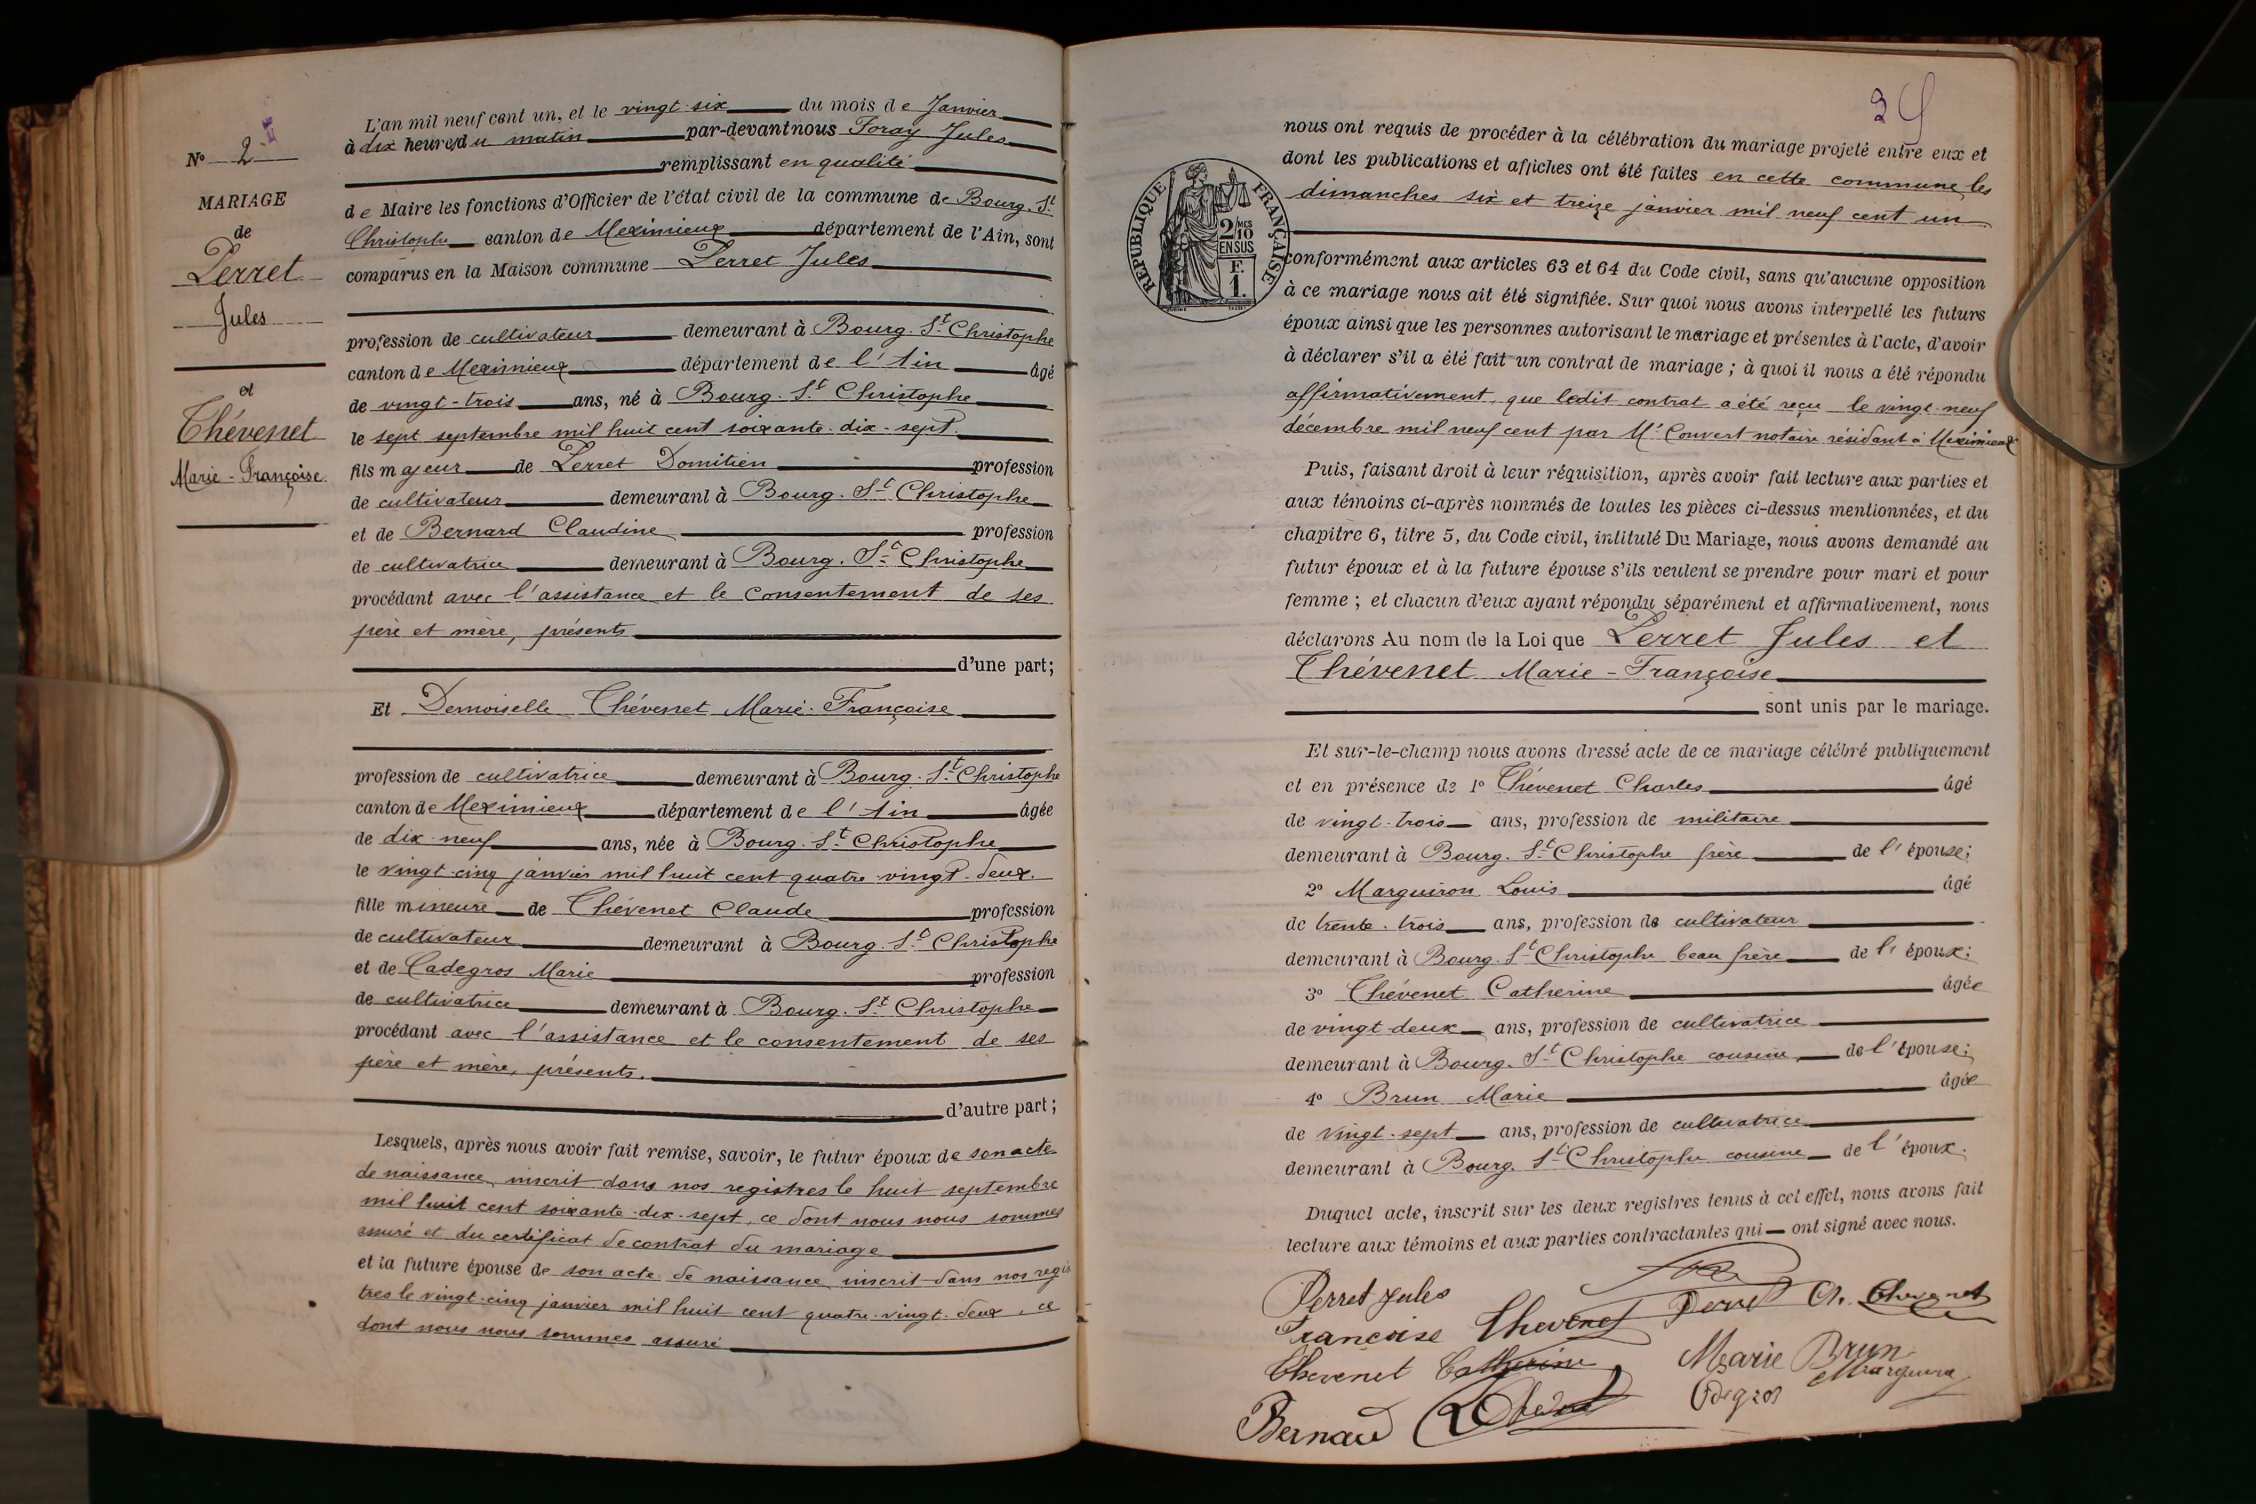 N° 2
MARIAGE
de
Perret
Jules
et
Thévenet
Marie-Françoise
L'an mil neuf cent un, et le vingt-six du mois de Janvier
à dix heures du matin par-devant nous Foray Jules
remplissant en qualité
de Maire les fonctions d'Officier de l'état civil de la commune de Bourg-St
Christophe canton de Meximieux département de l'Ain, sont
comparus en la Maison commune Perret Jules
profession de cultivateur demeurant à Bourg-St Christophe
canton de Meximieux département de l'Ain âgé
de vingt-trois ans, né à Bourg-St Christophe
le sept septembre mil huit cent soixante-dix-sept
fils majeur de Perret Domitien profession
de cultivateur demeurant à Bourg-St Christophe
et de Bernard Claudine profession
de cultivatrice demeurant à Bourg-St Christophe
procédant avec l'assistance et le consentement de ses
père et mère, présents
d'une part;
Et Demoiselle Thévenet Marie-Françoise
profession de cultivatrice demeurant à Bourg-St Christophe
canton de Meximieux département de l'Ain âgée
de dix-neuf ans, née à Bourg-St Christophe
le vingt-cinq janvier mil huit cent quatre-vingt-deux
fille mineure de Thévenet Claude profession
de cultivateur demeurant à Bourg-St Christophe
et de Cadegros Marie profession
de cultivatrice demeurant à Bourg-St Christophe
procédant avec l'assistance et le consentement de ses
père et mère, présents.
d'autre part;
Lesquels, après nous avoir fait remise, savoir, le futur époux de son acte
de naissance, inscrit dans nos registres le huit septembre
mil huit cent soixante-dix-sept, ce dont nous nous sommes
assuré et du certificat de contrat du mariage
et la future épouse de son acte de naissance inscrit dans nos regis
tres le vingt-cinq janvier mil huit cent quatre-vingt-deux, ce
dont nous nous sommes assuré
RÉPUBLIQUE FRANÇAISE
2/10 MES
EN SUS
F.
1.
nous ont requis de procéder à la célébration du mariage projeté entre eux et
dont les publications et affiches ont été faites en cette commune, les
dimanches six et treize janvier mil neuf cent un
conformément aux articles 63 et 64 du Code civil, sans qu'aucune opposition
à ce mariage nous ait été signifiée. Sur quoi nous avons interpellé les futurs
époux ainsi que les personnes autorisant le mariage et présentes à l'acte, d'avoir
à déclarer s'il a été fait un contrat de mariage ; à quoi il nous a été répondu
affirmativement, que ledit contrat a été reçu le vingt-neuf
décembre mil neuf cent par Me Couvert notaire résidant à Meximieux
Puis, faisant droit à leur réquisition, après avoir fait lecture aux parties et
aux témoins ci-après nommés de toutes les pièces ci-dessus mentionnées, et du
chapitre 6, titre 5, du Code civil, intitulé Du Mariage, nous avons demandé au
futur époux et à la future épouse s'ils veulent se prendre pour mari et pour
femme ; et chacun d'eux ayant répondu séparément et affirmativement, nous
déclarons Au nom de la Loi que Perret Jules et
Thévenet Marie-Françoise
sont unis par le mariage.
Et sur-le-champ nous avons dressé acte de ce mariage célébré publiquement
et en présence de 1° Thévenet Charles âgé
de vingt-trois ans, profession de militaire
demeurant à Bourg-St Christophe frère de l'épouse;
2° Marguiron Louis âgé
de trente-trois ans, profession de cultivateur
demeurant à Bourg-St Christophe beau frère de l'époux;
3° Thévenet Catherine âgée
de vingt-deux ans, profession de cultivatrice
demeurant à Bourg-St Christophe cousine de l'épouse;
4° Brun Marie âgée
de vingt-sept ans, profession de cultivatrice
demeurant à Bourg-St Christophe cousine de l'époux.
Duquel acte, inscrit sur les deux registres tenus à cet effet, nous avons fait
lecture aux témoins et aux parties contractantes qui ont signé avec nous.
Perret Jules
Perret Ch. Thevenet
Françoise Thevenet
Thevenet Catherine Marie Brun
Bernard